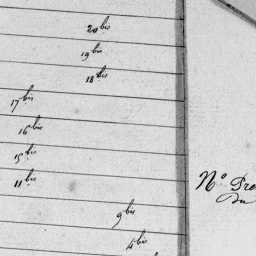 20bis
19bis
18bis
17bis
16bis
15bis
11bis
9bis
4bis
No